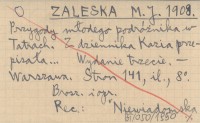 ZALESKA M. J. 1908.
Przygody młodego podróżnika w
Tatrach. Z dziennika Kazia prze-
pisała... Wydanie trzecie. —
Warszawa. Stron 141, il., 8°.
Brosz. i opr.
Rec: Niewiadomska